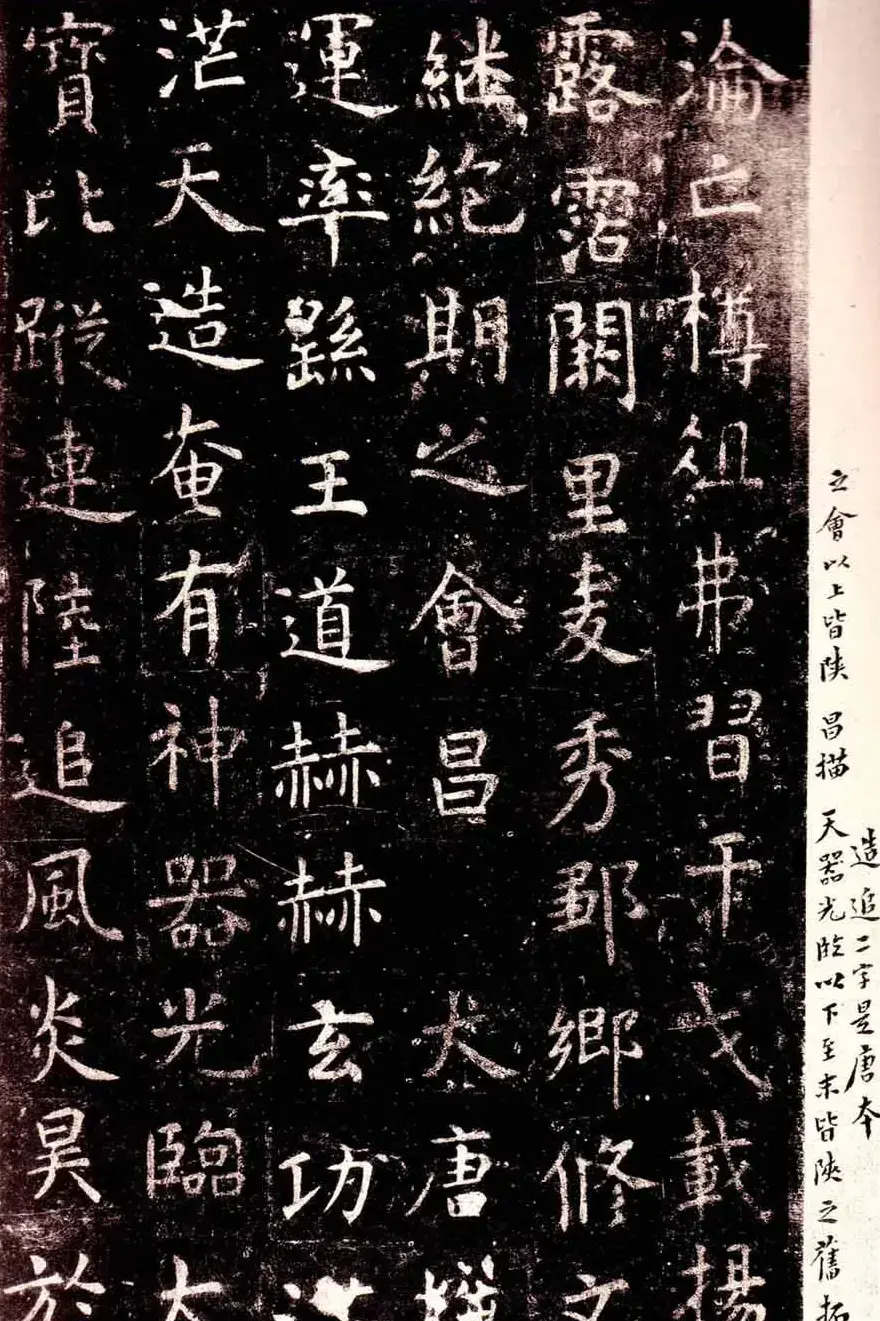 造追二字是唐本
之會以上皆陝 昌描 天器光臨以下至末皆陝之舊拓
淪亡樽俎弗習干戈載揚
露霑闕里麦秀鄒鄉修文
継絶期之會昌 大唐撰
運率繇王道赫赫玄功茫
茫天造奄有神器光臨大
寶比蹤連陸追風炎昊於